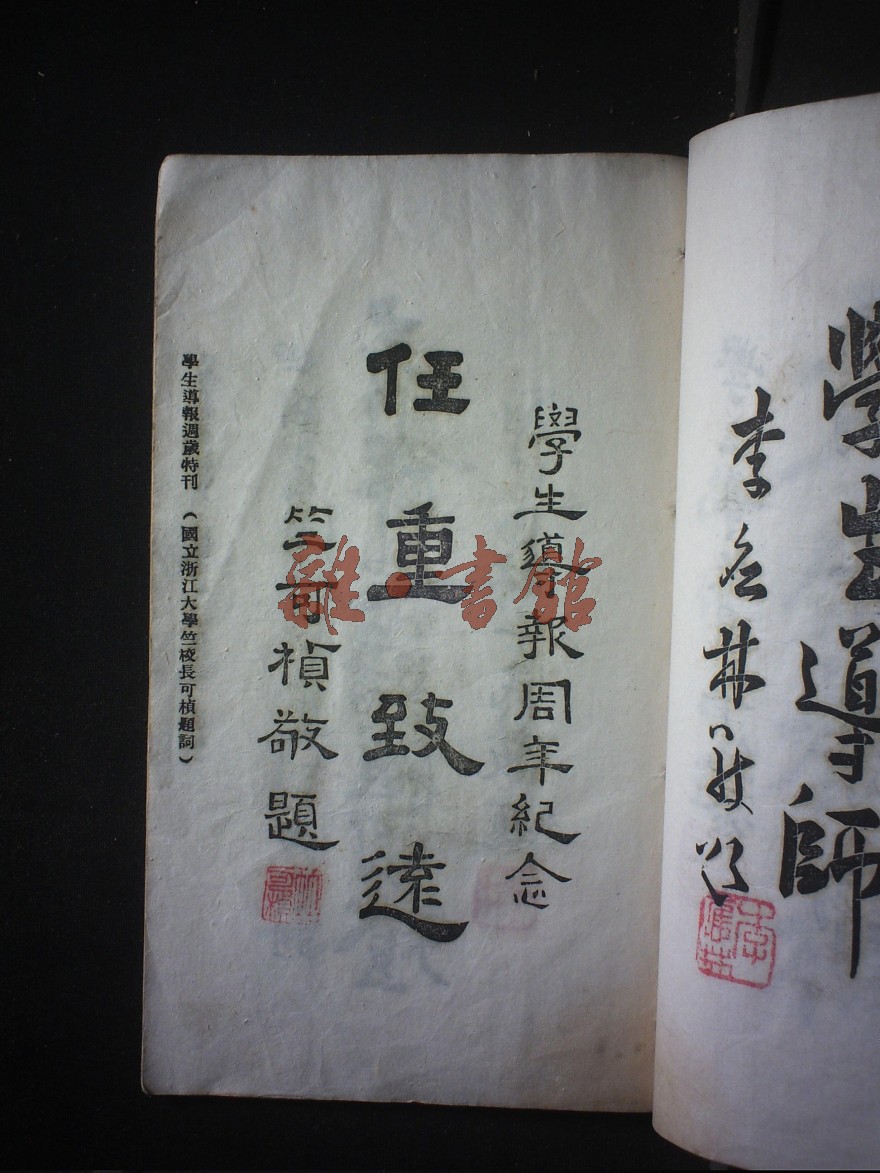 學生導師
李
學生導報周年紀念
任重致遠
竺可楨敬題
學生導報週歲特刊（國立浙江大學竺校長可楨題詞）
雜·書館